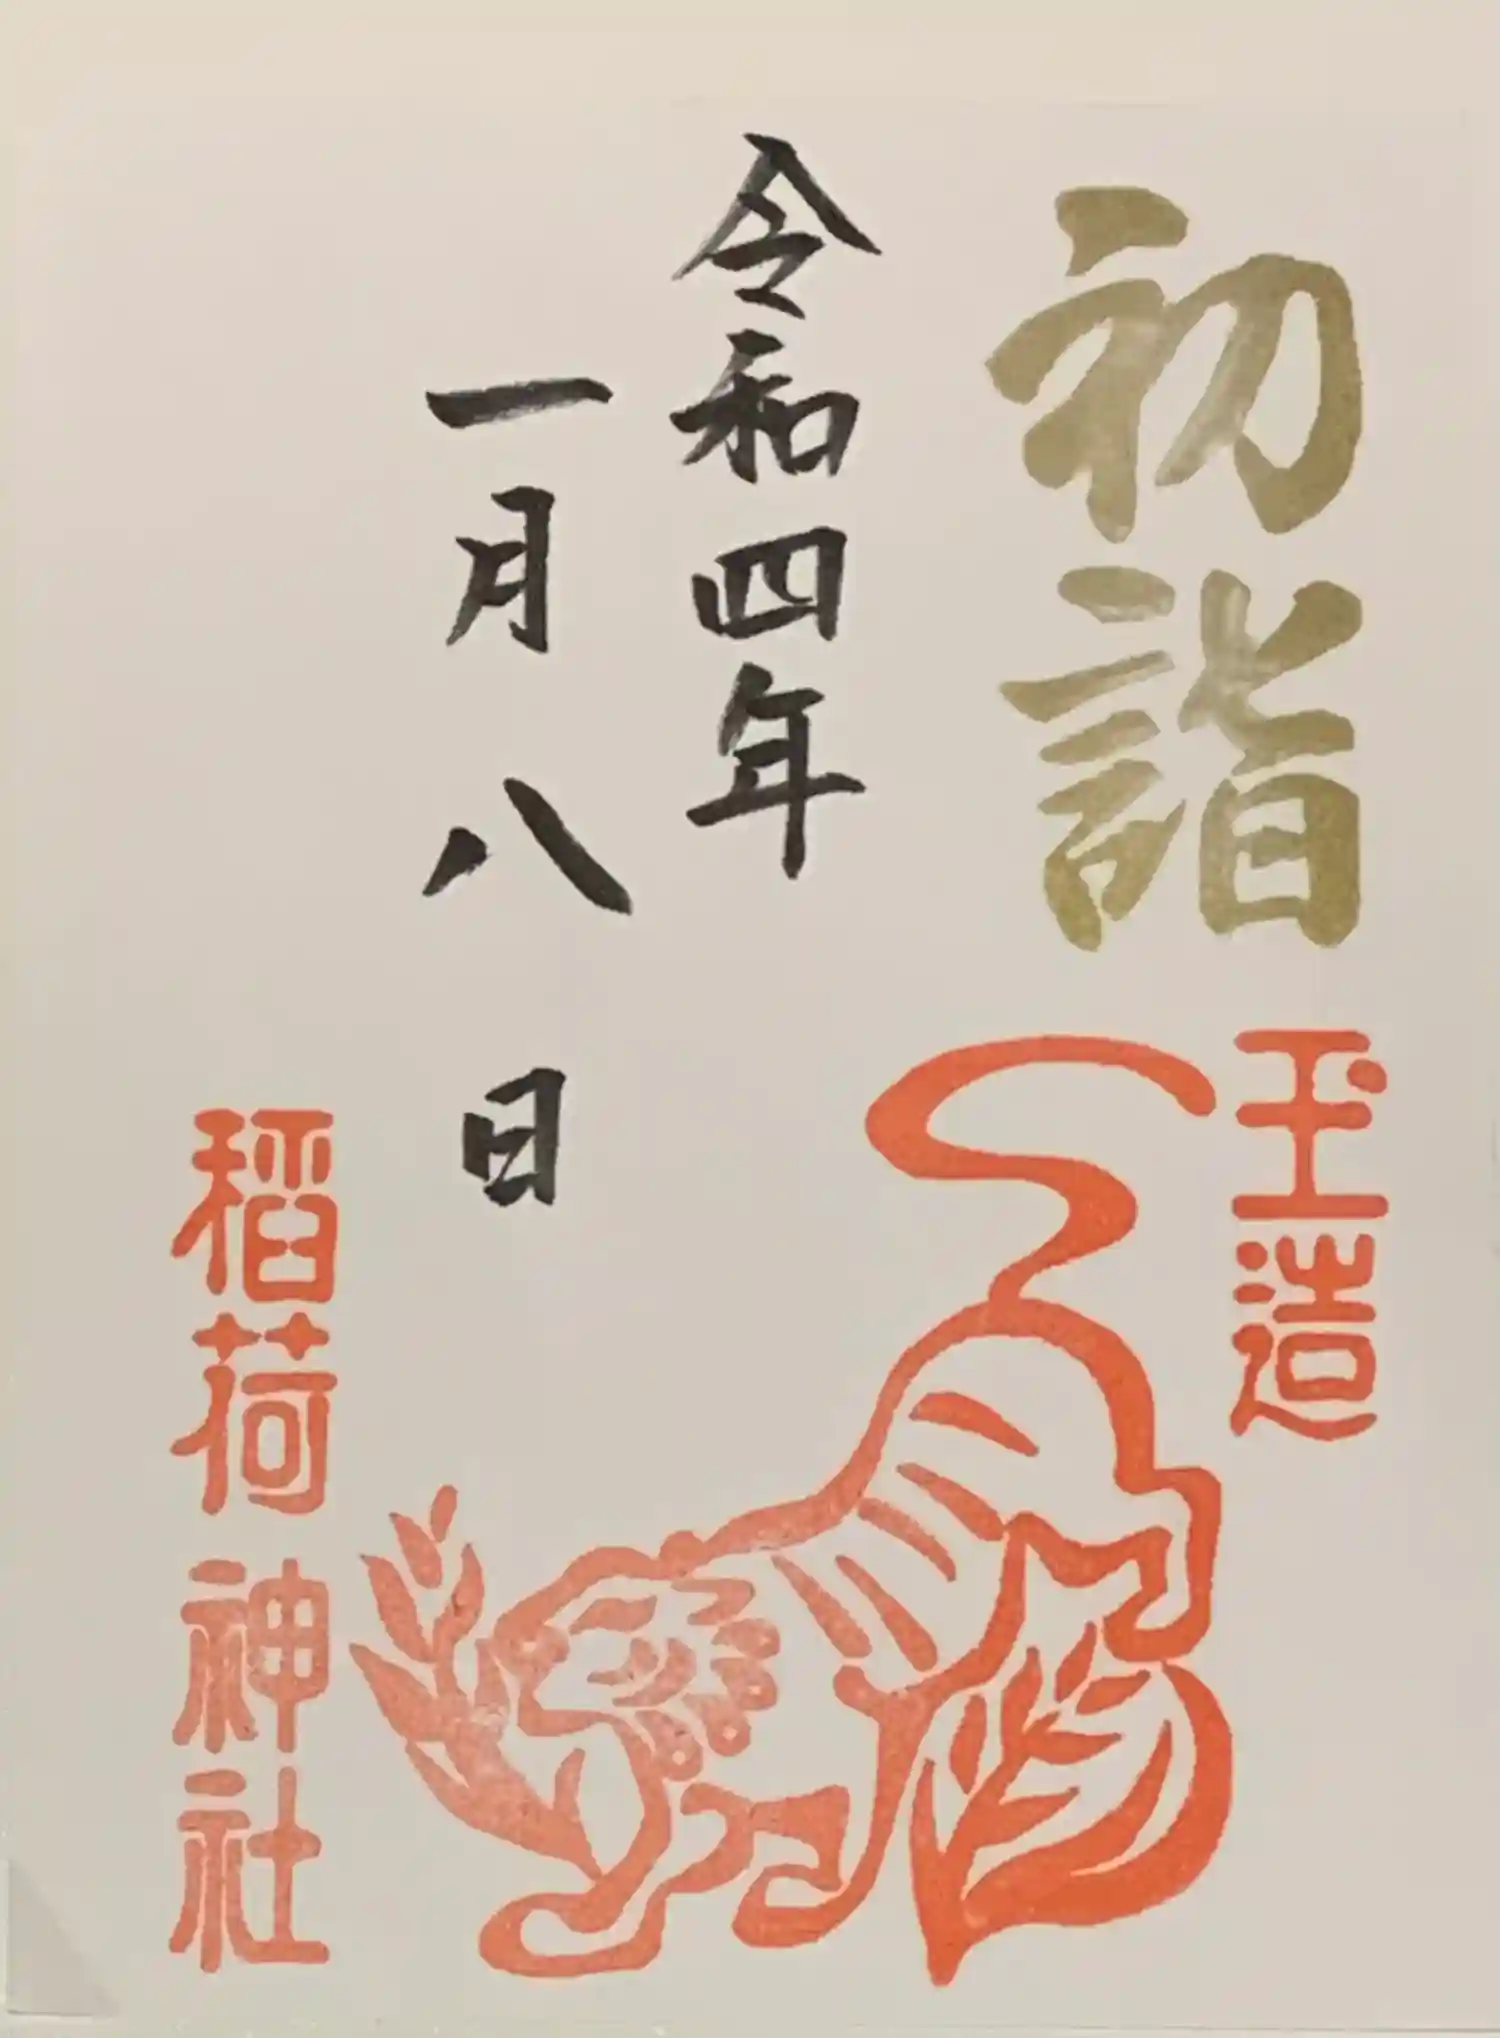 初詣
玉造
令和四年
一月八日
稲荷神社